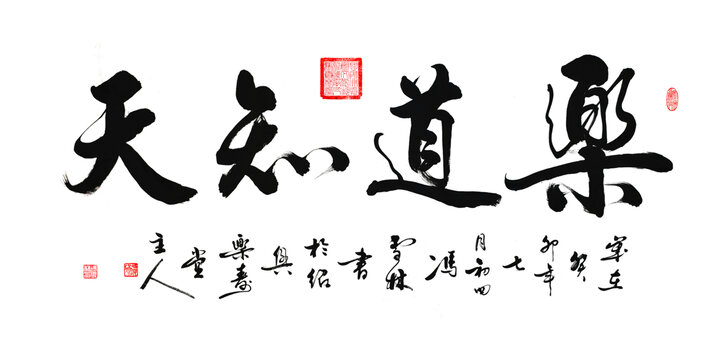 樂道知天
歲在
癸
卯年
七
月初四
馮
雪林
書
於紹
興
樂壽
堂
主人